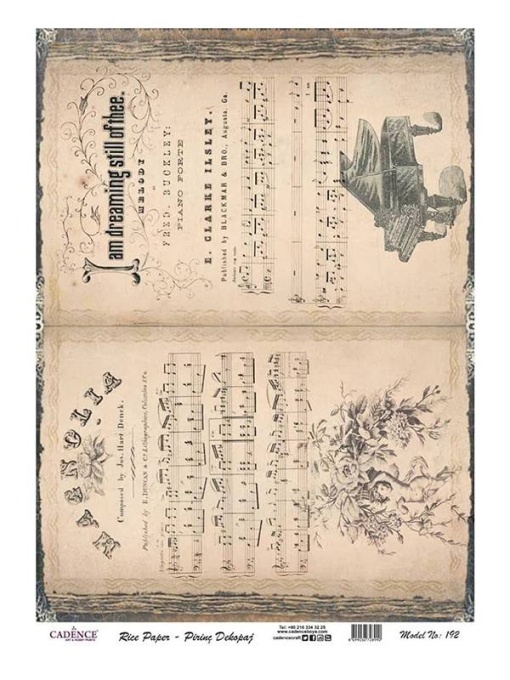 I am dreaming still of thee.
MELODY
FRED BUCKLEY.
PIANO FORTE
E. CLARKE ILSLEY.
Published by BLACKMAR & BRO. Augusta, Ga.
MAGNOLIA
Composed by Jas. Hart Denck.
CADENCE
Rice Paper - Pirinç Dekopaj
Tel: +90 216 324 32 25
www.cadenceboya.com
cadencecraft
Model No: 192